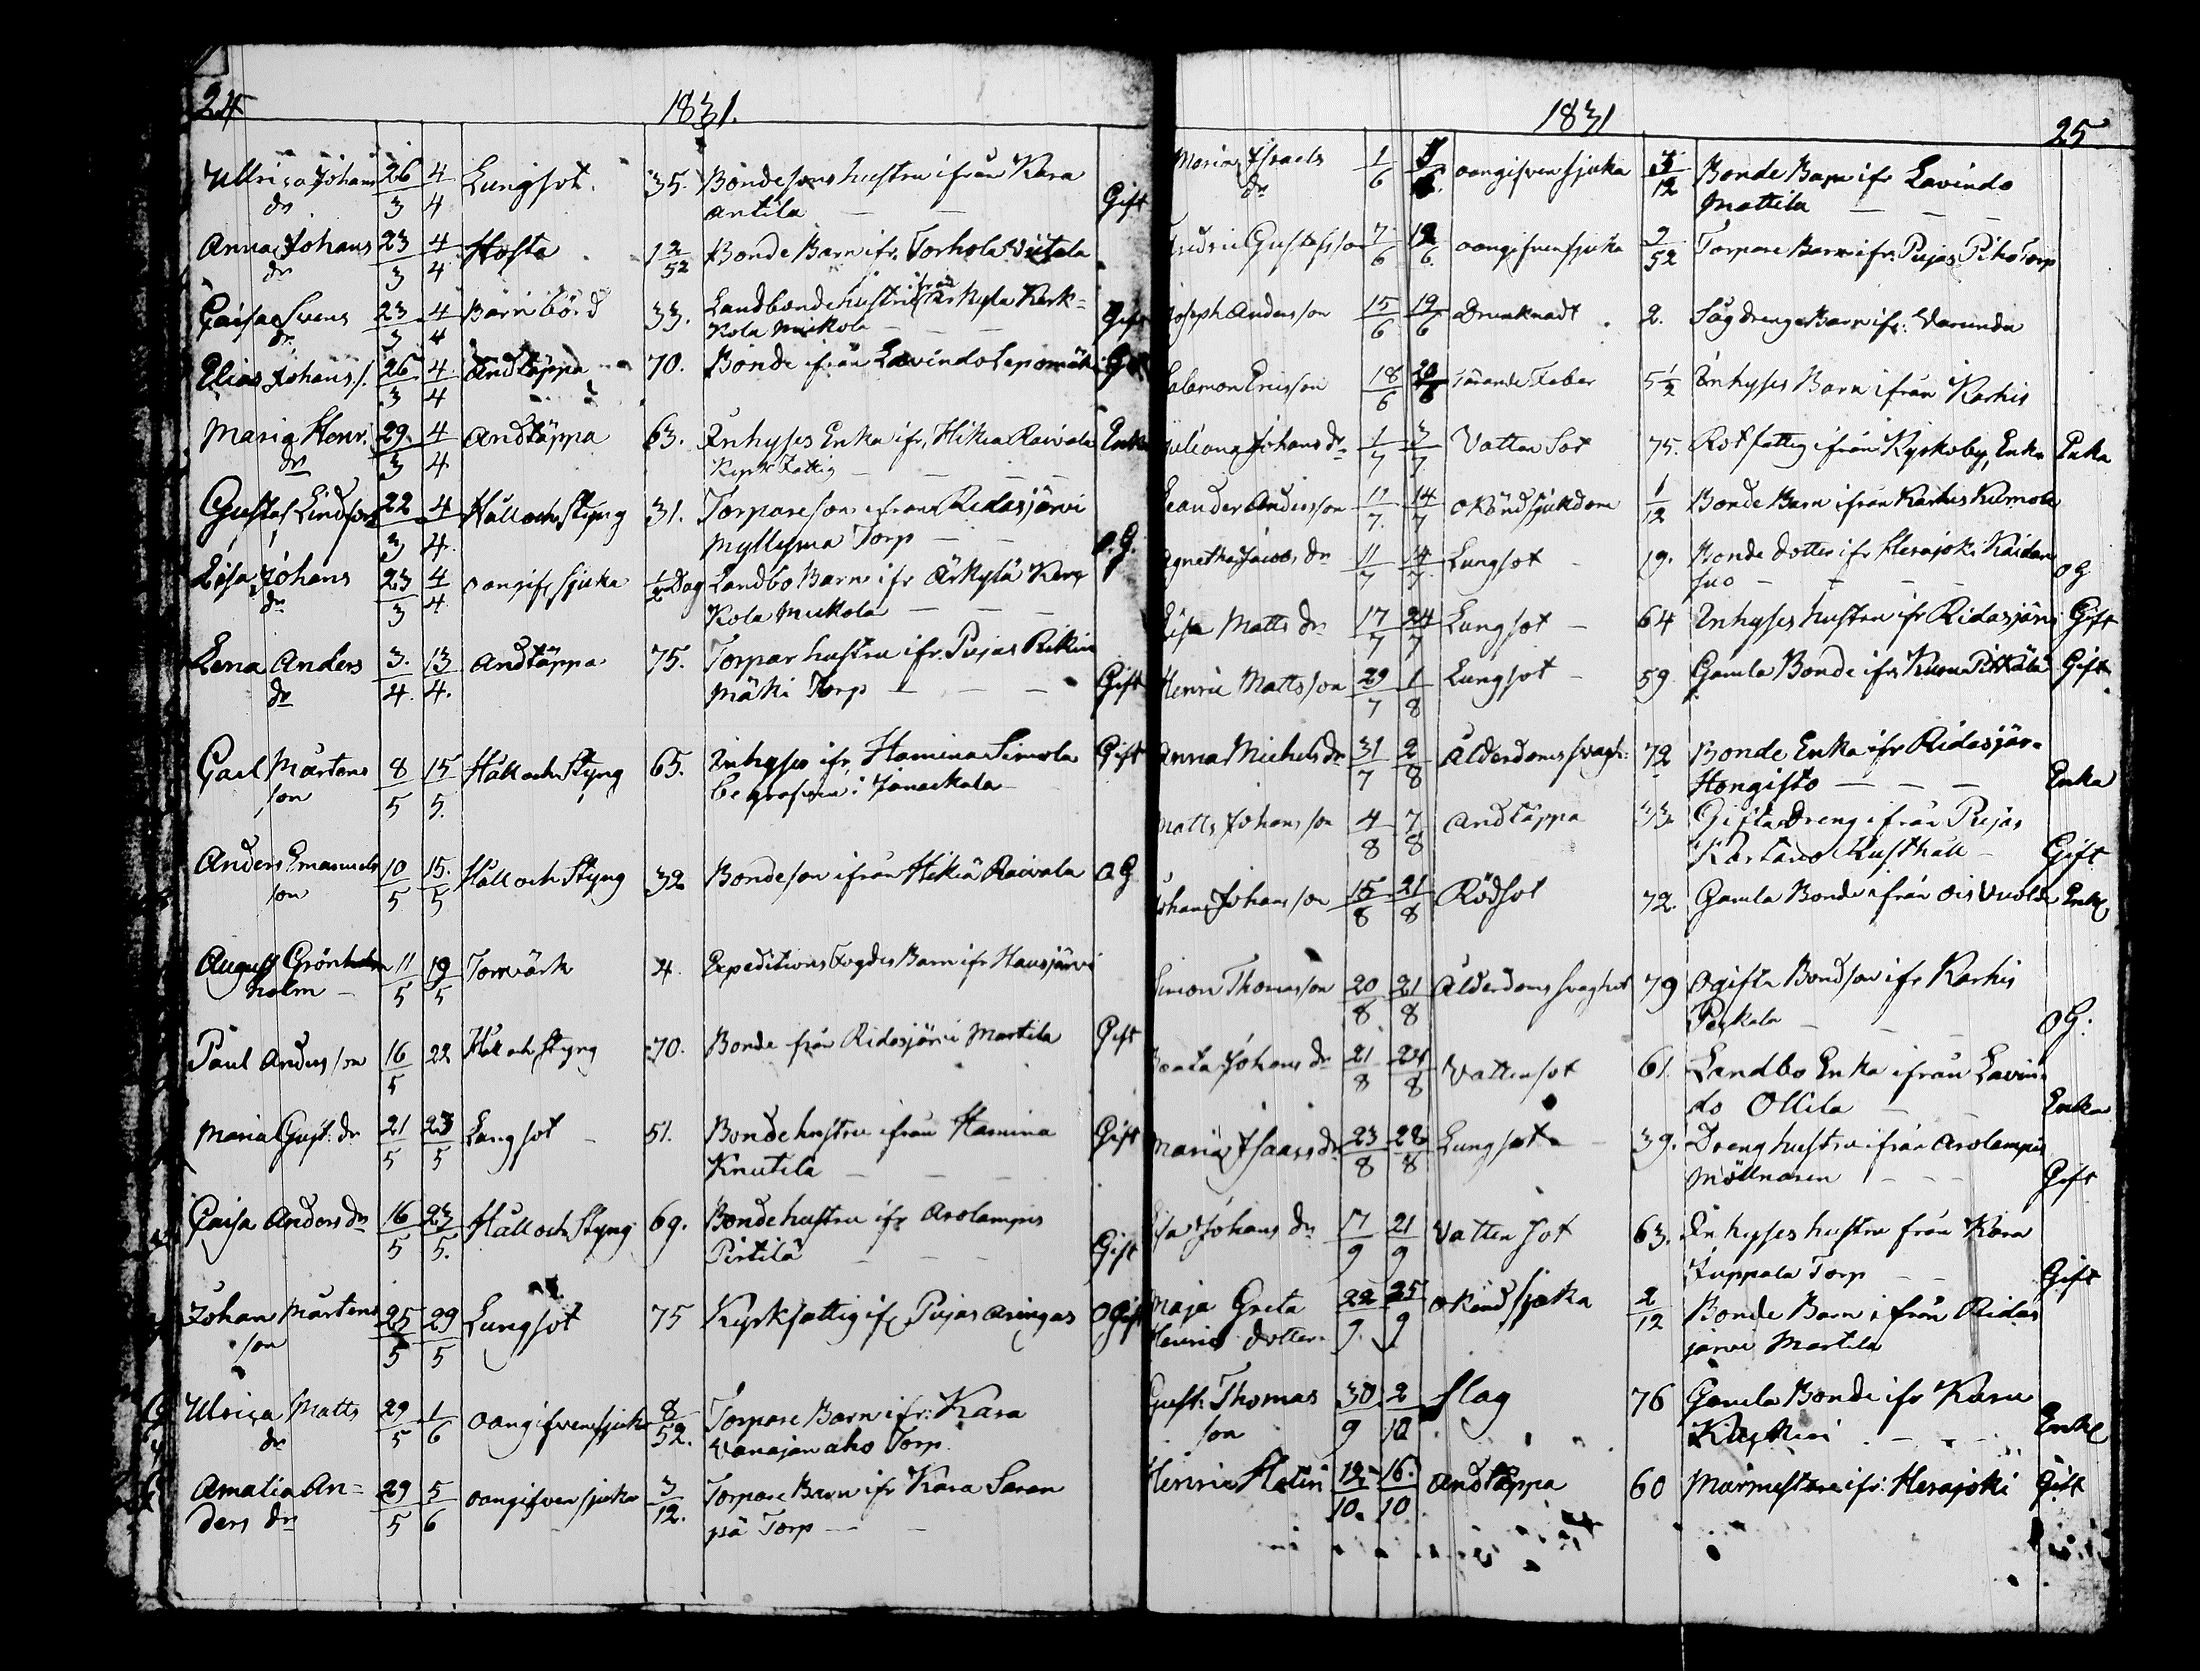 24
1831.
Ullrica Johans 26 4 Lungsot. 35. Bondesons hustru ifrån Kara
dr 3 4 Antila Gift
Anna Johans 23 4 Hosta 1 2/52 Bonde Barn ifr. Torhola
dr 3 4
Caisa Svens 23 4 Barnbörd 33. Landbonde hustru ifrån Kerk=
dr 3 4 Kola Mickola Gift
Elias Johans s. 26 4 Andtäppa 70. Bonde ifrån Lavindo
3 4
Maria Henr. 29 4 Andtäppa 63. Inhyses Enka ifr. Hikiä Raivala Enka
dr 3 4 Kyrk Fattig
Gustaf Lindfors 22 4 Håll och Styng 31. Torpareson ifrån Ridasjärvi
3 4. Myllyma Torp O.G.
Lisa Johans 23 4 oangif. sjuka 1/2 Dag Landbo Barn ifr Kerk
dr 3 4 Kola Mickola
Lena Anders 3. 13 Andtäppa 75. Torpar hustru ifr. Pujas
dr 4. 4. Mäki Torp Gift
Carl Mårtens 8 15 Håll och Styng 65. Inhyses ifr. Hamina Simola Gift
son 5 5. begrafven i Janackala
Anders Emanuels 10 15. Håll och Styng 32 Bondeson ifrån Hikiä Raivala OG
son 5 5
August Grön 11 19 Torrvärk 4. Expeditions Fogdes Barn ifr Hausjärvi
holm 5 5
Paul Anders son 16 22 Håll och Styng 70. Bonde från Ridasjärvi Martila Gift
5
Maria Gust. dr 21 23 Lungsot 51. Bondehustru ifrån Hamina Gift
5 5 Knutila
Caisa Anders dr 16 23 Håll och Styng 69. Bondehustru ifr Arolampis
5 5. Pirtilä Gift
Johan Mårtens 25 29 Lungsot 75 Kyrkfattig ifr Pujas Aringas OGift
son 5 5
Ulrica Matts 29 1 oangifven sjuka 8 Torpare Barn ifr: Kara
dr 5 6 52. Vanajan aho Torp.
Amalia An= 29 5 oangifven sjuka 3 Torpare Barn ifr Kara Saran
ders dr 5 6 12. pä Torp
1831
25
Maria Israels 1 oangifven sjuka Bonde Barn ifr Lavindo
dr 6 12 Mattila
Gustafsson 7 12 oangifven sjuka 2 Torpare Barn ifr. Pujas Piho Torp
6 6. 52
Joseph Andersson 15 19 Drunknadt 2. Barn ifr:
6 6
Salomon Ericsson 18 20 Tärande Feber 5 1/2 Inhyses Barn ifrån Karhis
6 6
Juliana Johans dr 1 3 Vatten Sot 75. Rotfattig ifrån Kyrkoby, Enka Enka
7 7
Leander Andersson 11 14 okänd sjukdom 1 Bonde Barn ifrån Karhis
7. 7 12
Agnetha Jacobs dr 11 14 Lungsot 19. Bonde dotter ifr Herajoki Kaidan
7 7. suo OG
Lisa Matts dr 17 24 Lungsot 64 Inhyses hustru ifr Ridasjärvi Gift
7 7
Henric Matts son 29 1 Lungsot 59 Gamla Bonde ifr Kuru Gift
7 8
Anna Michels dr 31 2 Ålderdoms svagh: 72 Bonde Enka ifr Ridasjär=
7 8 Hongisto Enka
Matts Johans son 4 7 Andtäppa 33. Gifta Dreng ifrån Pujas
8 8 Kartano Rusthåll Gift
Johan Johans son 15 21 Rödsot 72. Gamla Bonde ifrån Ois Enkl
8 8
Simon Thomasson 20 21 Ålderdoms svaghet 79 ogifta Bondson ifr Karhis
8 8 OG:
Beata Johans dr 21 24 Vattensot 61. Landbo Enka ifrån Lavin=
8 8 do Ollila Enka
Maria Isaacs dr 23 28 Lungsot 39. Dreng hustru ifrån Arolampis
8 8 Möllnaren Gift
Lisa Johans dr 17 21 Vatten Sot 63. Inhyses hustru från Kara
9 9 Juppala Torp Gift
Maja Greta 22 25 okänd sjuka 2 Bonde Barn ifrån Ridas
Henrics dotter 9. 9 12 järvi Martila
Gust: Thomas 30 2 slag 76 Gamla Bonde ifr Karu
son 9 10 Enkl
Henric 12 16. Andtäppa 60 Murmestare ifr: Herajoki Gift
10. 10.